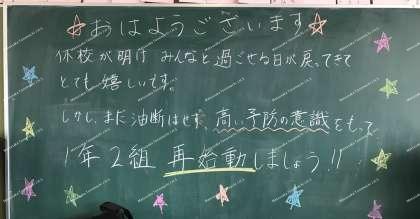 おはようございます
休校が明け みんなと過ごせる日が戻ってきて
とても嬉しいです。
しかし、まだ油断はせず、高い予防の意識をもって
1年2組 再始動しましょう!!